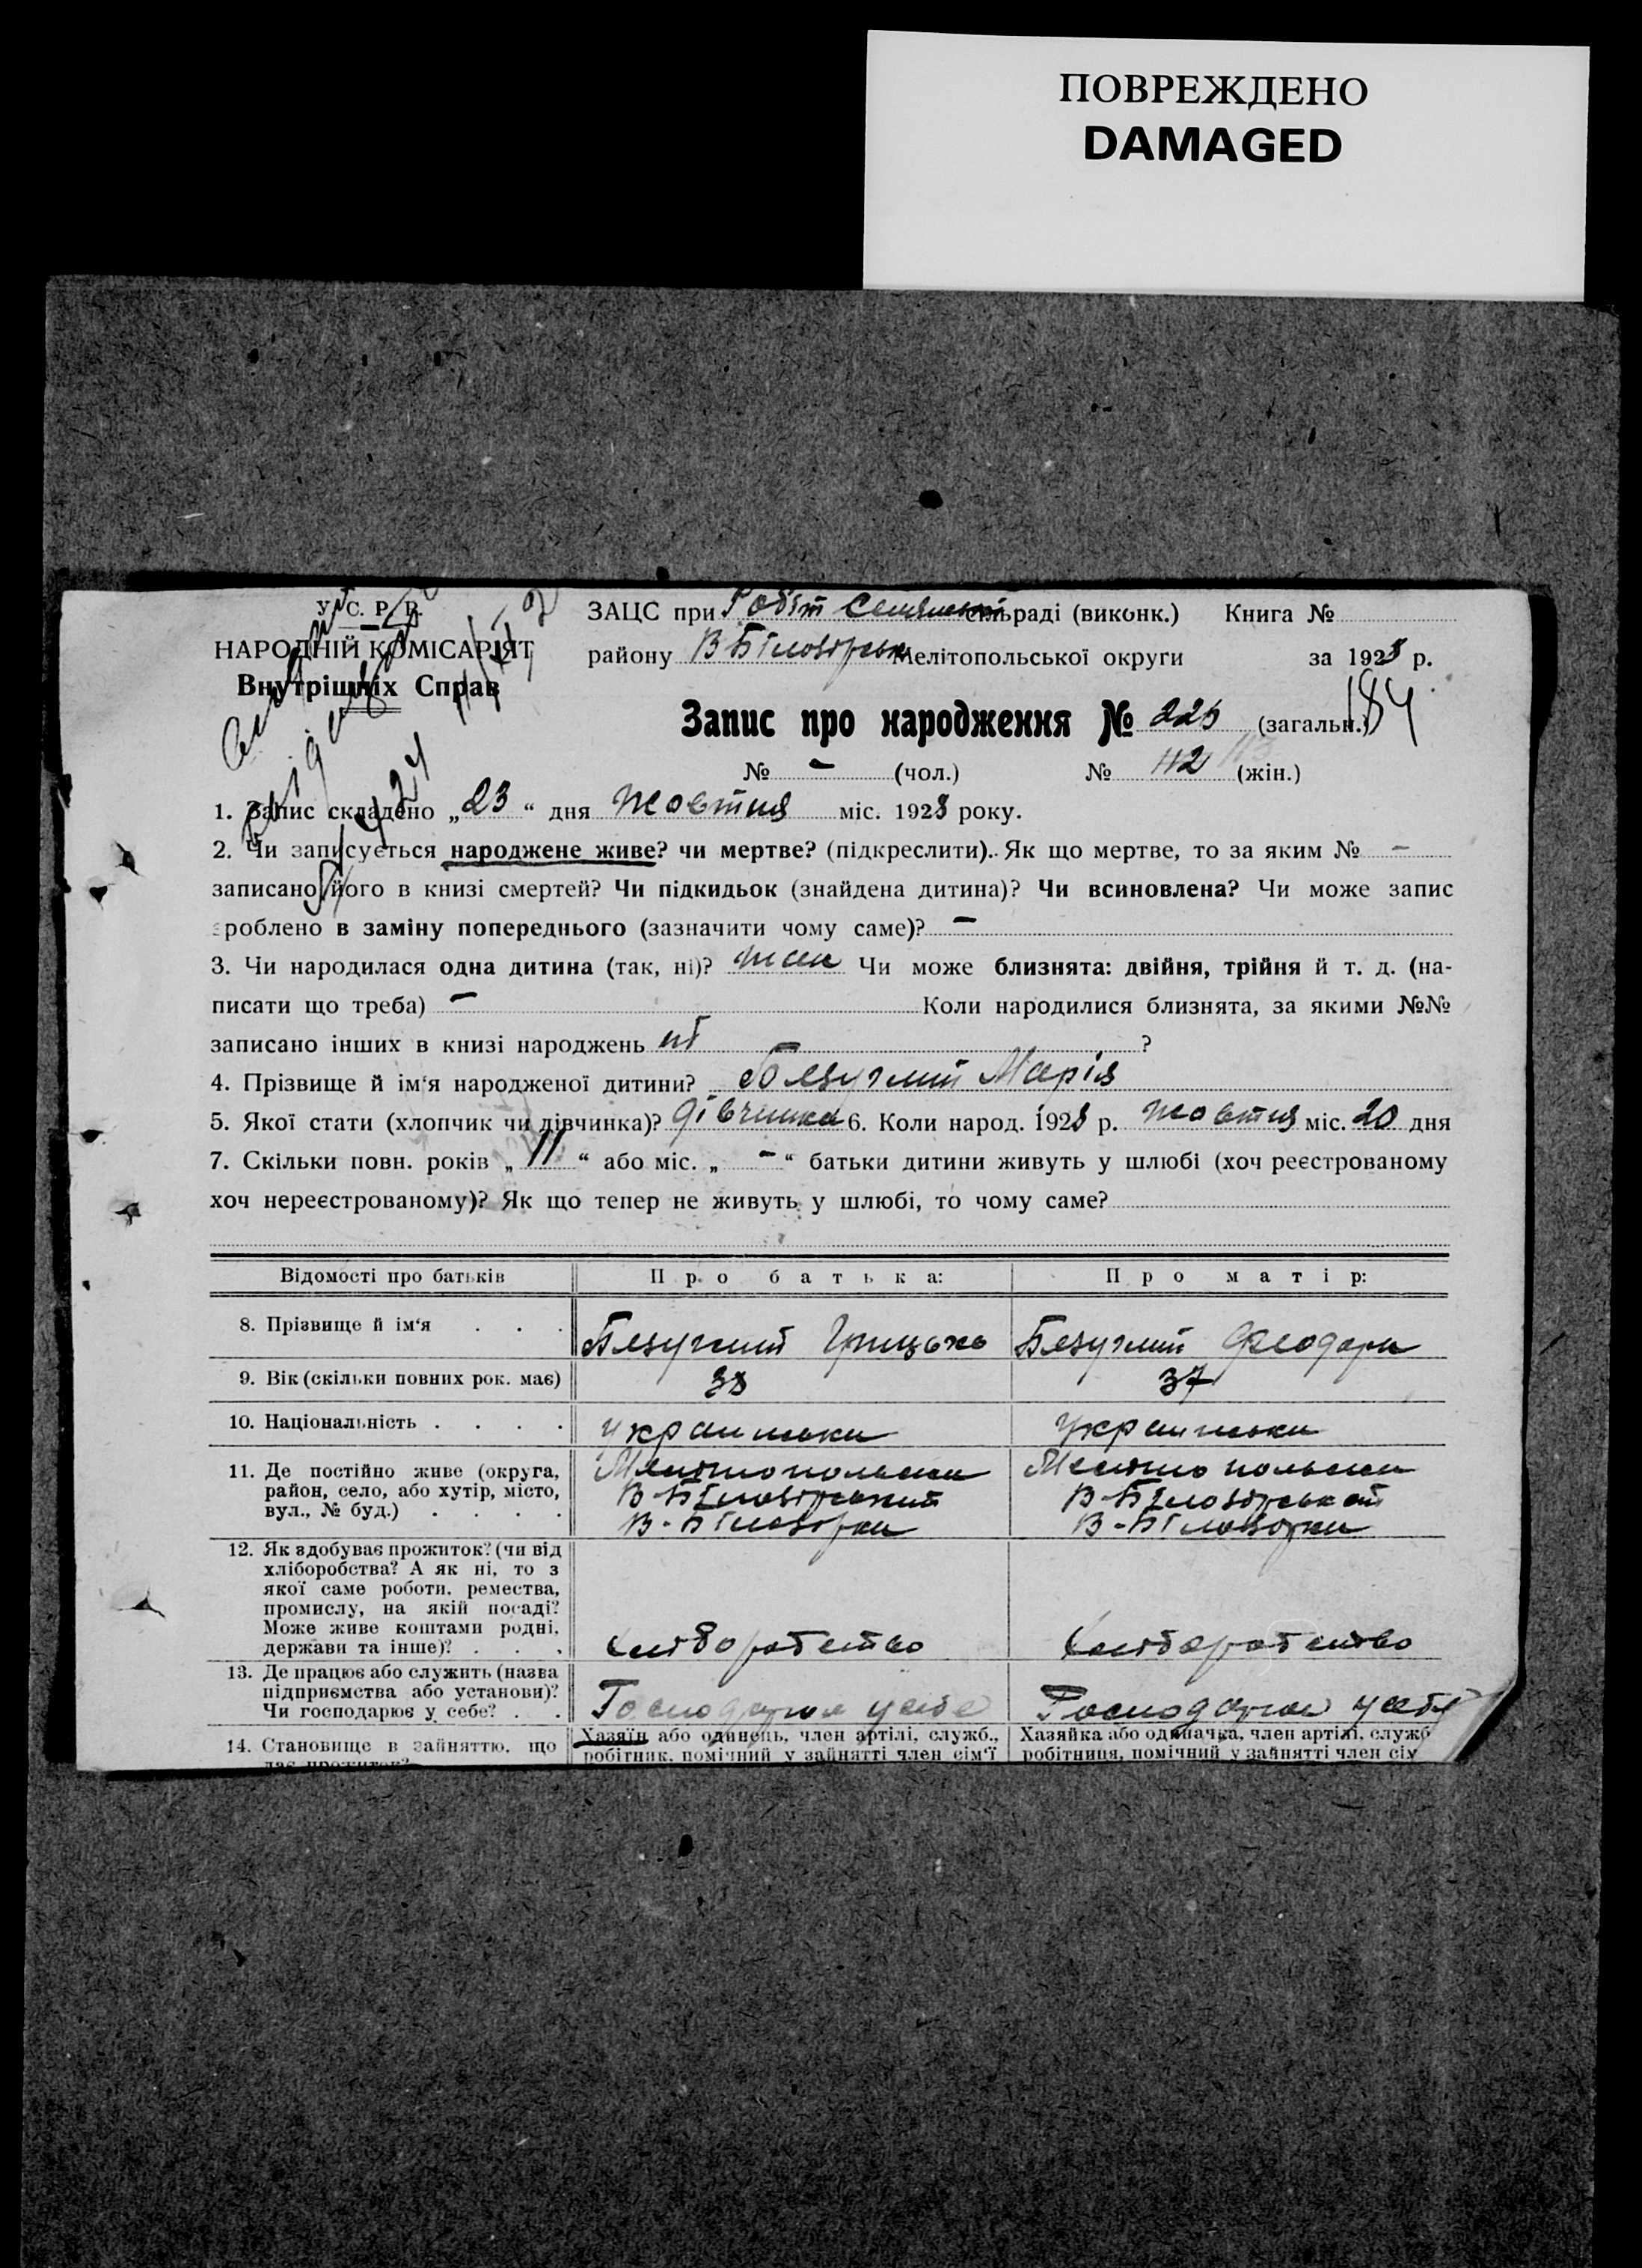 ПОВРЕЖДЕНО
DAMAGED
У. С. Р. Р.
НАРОДНІЙ КОМІСАРІЯТ
Внутрішніх Справ
ЗАЦС при Робіт Селянській сільраді (виконк.) Книга №
району В Білозірськ Мелітопольської округи за 1928 р.
184
Запис про народження № 226 (загальн.)
№ – (чол.) № 112 (жін.)
1. Запис складено „23“ дня жовтня міс. 1928 року.
2. Чи записується народжене живе? чи мертве? (підкреслити). Як що мертве, то за яким № –
записано його в книзі смертей? Чи підкидьок (знайдена дитина)? Чи всиновлена? Чи може запис
зроблено в заміну попереднього (зазначити чому саме)? –
3. Чи народилася одна дитина (так, ні)? так Чи може близнята: двійня, трійня й т. д. (на-
писати що треба) – Коли народилися близнята, за якими №№
записано інших в книзі народжень ні ?
4. Прізвище й ім'я народженої дитини? Безуглий Марія
5. Якої стати (хлопчик чи дівчинка)? дівчинка 6. Коли народ. 1928 р. жовтня міс. 20 дня
7. Скільки повн. років „11“ або міс. „–“ батьки дитини живуть у шлюбі (хоч реєстрованому
хоч нереєстрованому)? Як що тепер не живуть у шлюбі, то чому саме?
Відомості про батьків Про батька: Про матір:
8. Прізвище й ім'я . . . Безуглий Грицько Безуглий Феодора
9. Вік (скільки повних рок. має) 38 37
10. Національність . . . . украинська украинська
11. Де постійно живе (округа, Мелітопольська Мелітопольська
район, село, або хутір, місто, В-Білозірський В-Білозірський
вул., № буд.) . . . . В-Білозірка В-Білозірка
12. Як здобуває прожиток? (чи від
хліборобства? А як ні, то з
якої саме роботи, ремества,
промислу, на якій посаді?
Може живе коштами родні,
держави та інше)? . . . хліборобство хліборобство
13. Де працює або служить (назва
підприємства або установи)?
Чи господарює у себе? . . Господарює у себе Господарює у себе
14. Становище в зайняттю, що Хазяїн або одинець, член артілі, служб., Хазяйка або одиначка, член артілі, служб
дає прожиток? робітник, помічний у зайнятті член сім'ї робітниця, помічний у зайнятті член сім